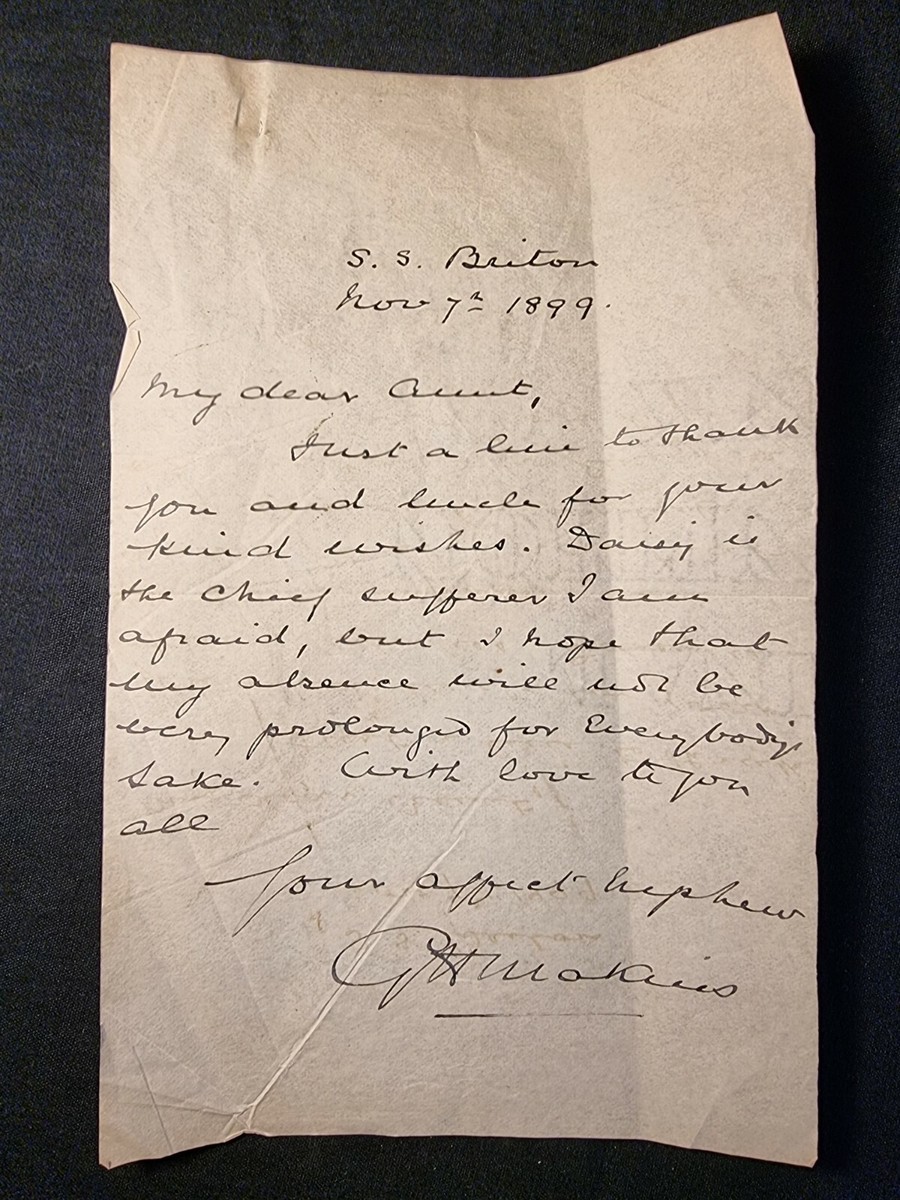 S. S. Briton
Nov 7th 1899.
My dear Aunt,
Just a line to thank
you and Uncle for your
kind wishes. Daisy is
the chief sufferer I am
afraid, but I hope that
my absence will not be
very prolonged for Everybody's
sake. With love to you
all
Your affect nephew
GHMakins